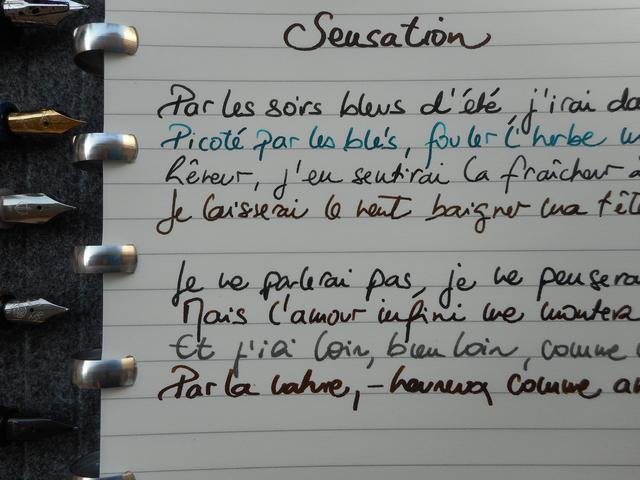 Sensation
Par les soirs bleus d'été, j'irai da
Picoté par les blés, fouler l'herbe
Rêveur, j'en sentirai la fraîcheur a
Je laisserai le vent baigner ma têt
Je ne parlerai pas, je ne penserai
Mais l'amour infini me montera
Et j'irai loin, bien loin, comme
Par la nature, - heureux comme a